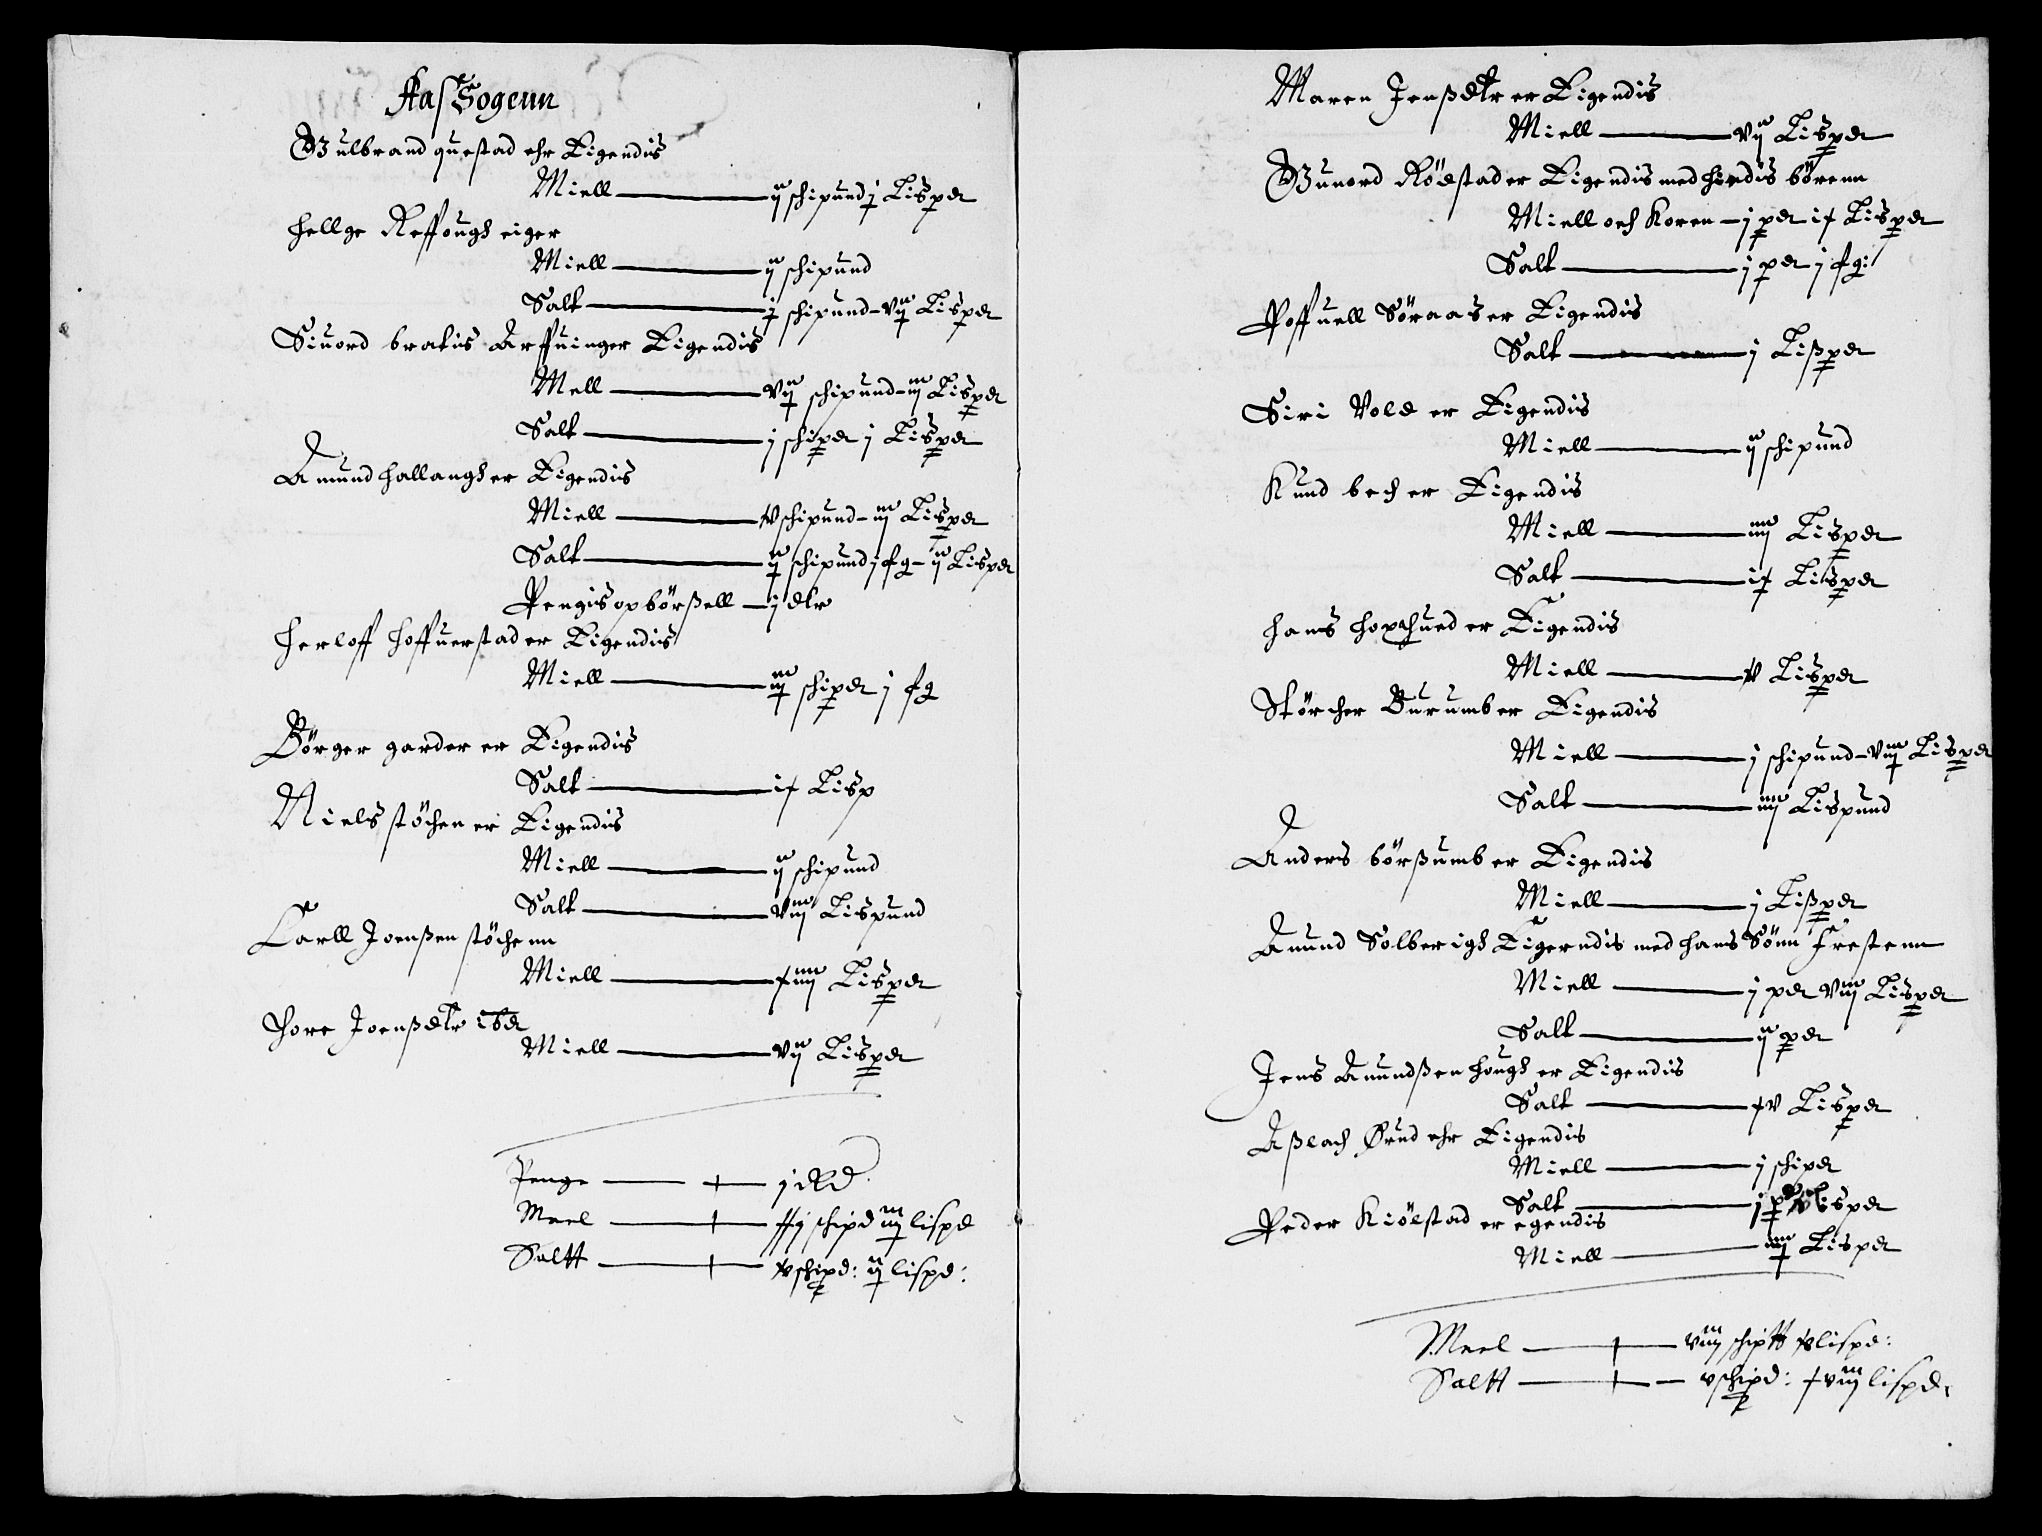 Aas Sogenn
Gulbrand questad ehr Eigendis
Miell — ij schipund j Lisper
Hellge Reffough eiger
Miell — ij schipund
Salt — j schipund – vij Lisper
Siuord bratis Arffuinger Eigendis
Mell — vij schipund – iij Lisper
Salt — j schiper j Lisper
Amund hallangh er Eigendis
Miell — schipund – iij Lisper
Salt — ij schipund j fg – ij Lisper
Pengis opbörßell — j dlr
Herloff Hoffuerstad er Eigendis
Miell — iij schiper j fg
Börger garder er Eigendis
Salt — Lisp
Niels stöchen er Eigendis
Miell — ij schipund
Salt — viij Lispund
Carll Joenßen stöchenn
Miell — Lisper
Thore Joenßdtr ibd
Miell — vij Lisper
Penge — j Rd
Meel — schipd iij lispd
Saltt — schipd: ij lispd:
Maren Jenßdtr er Eigendis
Miell — vij Lisper
Gunord Rödstad er Eigendis med hindis börenn
Miell och Koren — j per Lisper
Salt — j per j fg:
Poffuell Söraas er Eigendis
Salt — j Lißper
Siri Vold er Eigendis
Miell — ij schipund
Knud bech er Eigendis
Miell — iiij Lisper
Salt — Lisper
Hans er Eigendis
Miell — Lisper
Störcher Burumb er Eigendis
Miell — j schipund – viij Lisper
Salt — iiij Lispund
Anders börßumb er Eigendis
Miell — j Lißper
Amund Solberigh Eigerndis med hans Sönn Frestenn
Miell — j per viij Lisper
Salt — ij per
Jens Amundßen Hough er Eigendis
Salt — xv Lisper
Aßlach Ørud ehr Eigendis
Miell — j schiper
Salt — j Lisper
Peder Kiölstad er egendis
Miell — Lisper
Meel — viij lispd:
Saltt — v schipd: xviij lispd.